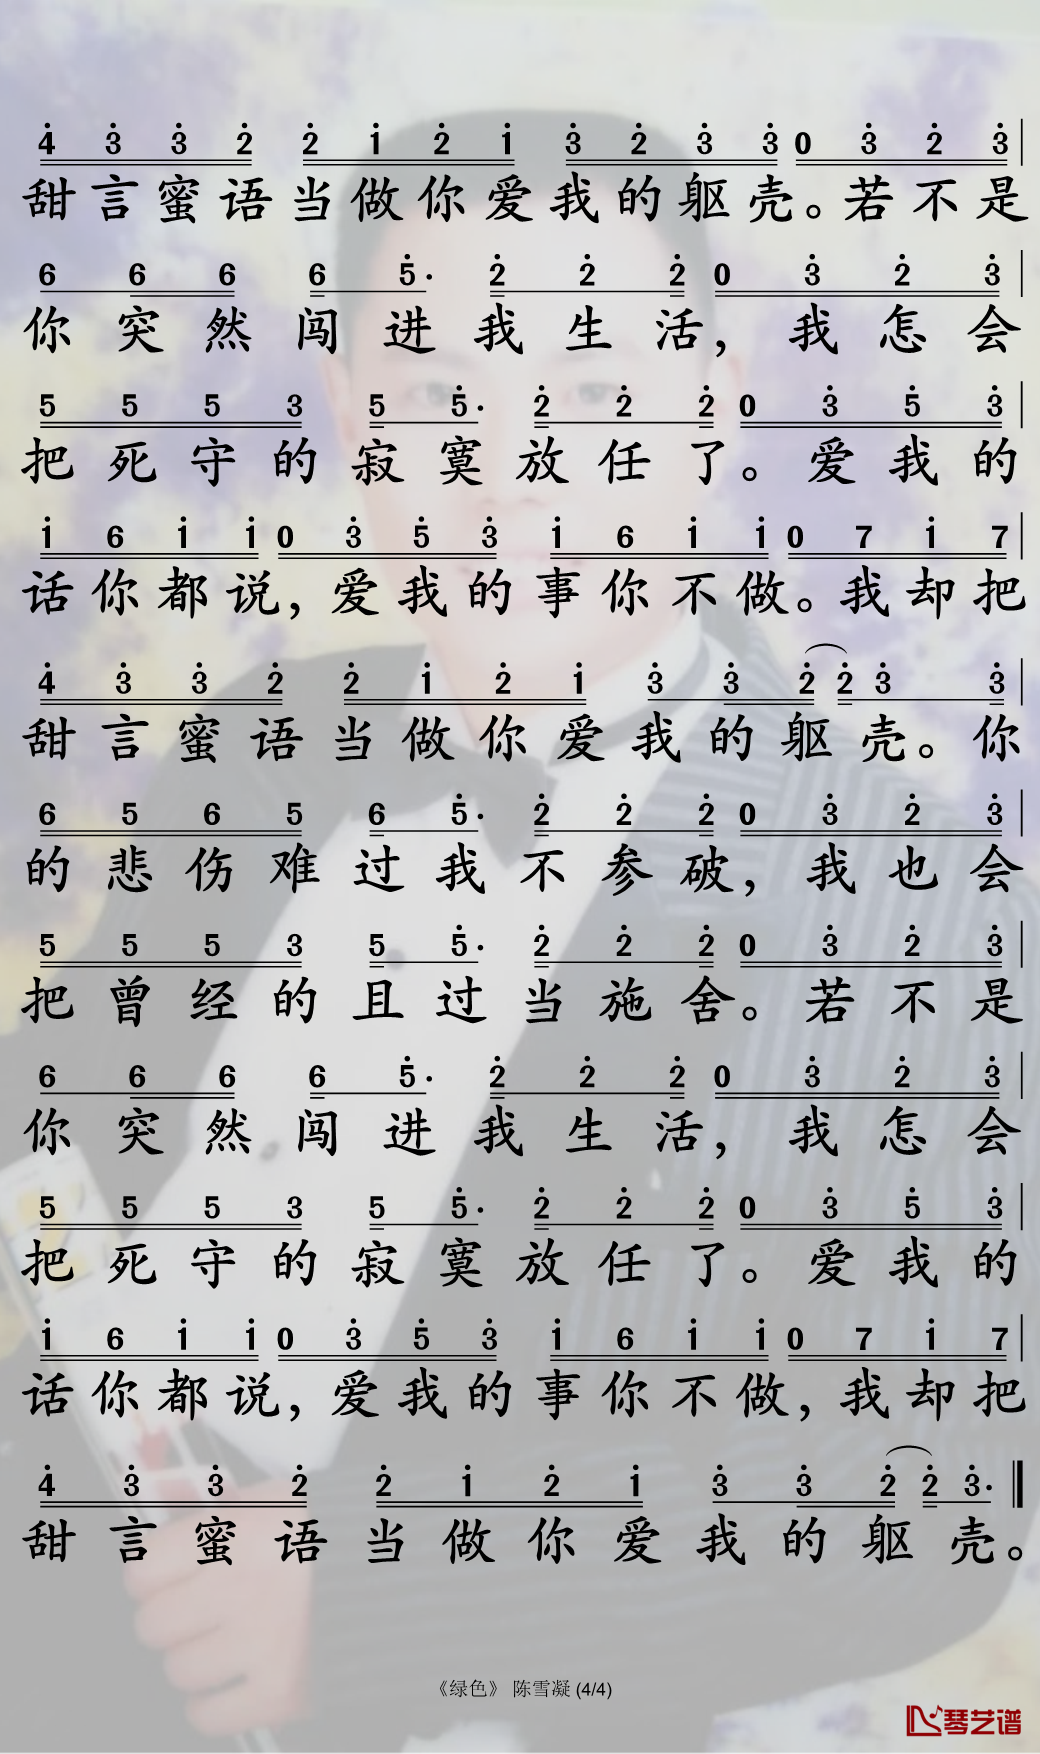 4 3 3 2 2 1 2 1 3 2 3 3 0 3 2 3
甜言蜜语当做你爱我的躯壳。若不是
6 6 6 6 5· 2 2 2 0 3 2 3
你突然闯进我生活，我怎会
5 5 5 3 5 5· 2 2 2 0 3 5 3
把死守的寂寞放任了。爱我的
1 6 1 1 0 3 5 3 1 6 1 1 0 7 1 7
话你都说，爱我的事你不做。我却把
4 3 3 2 2 1 2 1 3 3 2 2 3 3
甜言蜜语当做你爱我的躯壳。你
6 5 6 5 6 5· 2 2 2 0 3 2 3
的悲伤难过我不参破，我也会
5 5 5 3 5 5· 2 2 2 0 3 2 3
把曾经的且过当施舍。若不是
6 6 6 6 5· 2 2 2 0 3 2 3
你突然闯进我生活，我怎会
5 5 5 3 5 5· 2 2 2 0 3 5 3
把死守的寂寞放任了。爱我的
1 6 1 1 0 3 5 3 1 6 1 1 0 7 1 7
话你都说，爱我的事你不做，我却把
4 3 3 2 2 1 2 1 3 3 2 2 3·
甜言蜜语当做你爱我的躯壳。
《绿色》 陈雪凝 (4/4)
琴艺谱